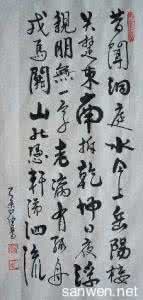 昔聞洞庭水今上岳陽樓
吳楚東南坼乾坤日夜浮
親朋無一字老病有孤舟
戎馬關山北憑軒涕泗流
三文网
sanwen.net